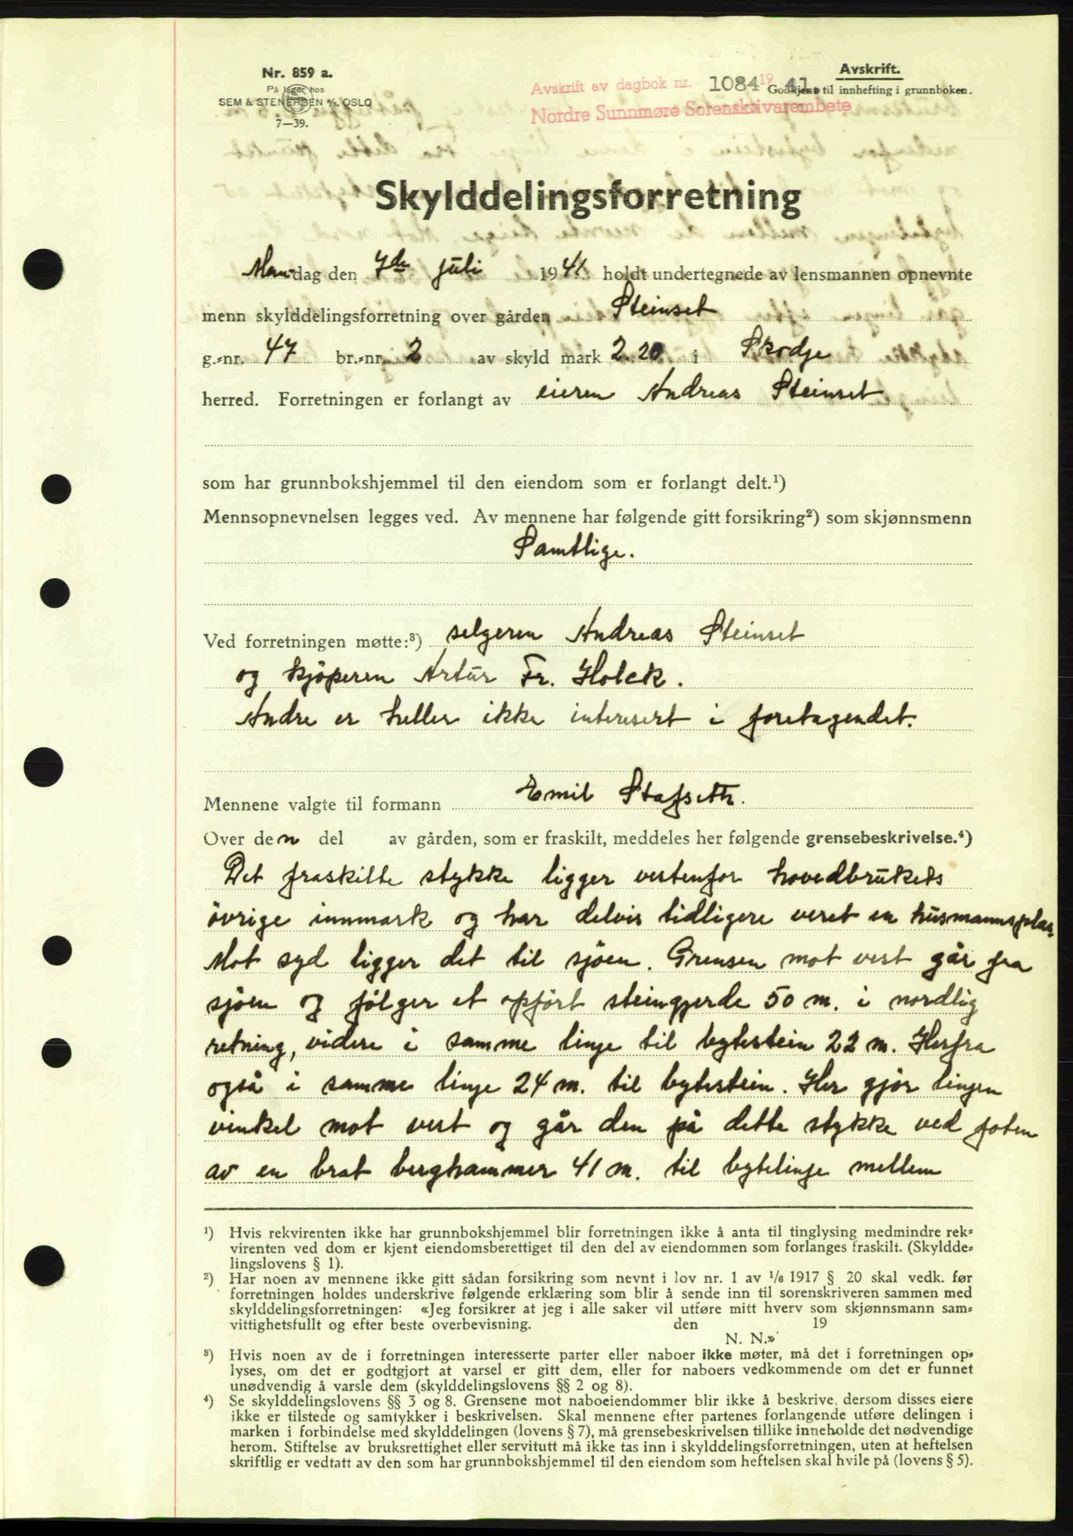 Nr. 859 a.
På lager hos
SEM & STENERSEN A/S, OSLO
7—39.
Avskrift av dagbok nr. 1084 19 41
Nordre Sunnmøre Sorenskrivarembete
Avskrift.
Godkjent til innhefting i grunnboken.
Skylddelingsforretning
Mandag den 7de juli 1941 holdt undertegnede av lensmannen opnevnte
menn skylddelingsforretning over gården Steinset
g.-nr. 47 br.-nr. 2 av skyld mark 2.20 i Skodje
herred. Forretningen er forlangt av eieren Andreas Steinset
som har grunnbokshjemmel til den eiendom som er forlangt delt.¹)
Mennsopnevnelsen legges ved. Av mennene har følgende gitt forsikring²) som skjønnsmenn
Samtlige.
Ved forretningen møtte:³) selgeren Andreas Steinset
og kjøperen Artur Fr. Holck.
Andre er heller ikke interesert i foretagendet.
Mennene valgte til formann Emil Stafseth.
Over den del av gården, som er fraskilt, meddeles her følgende grensebeskrivelse.⁴)
Det fraskilte stykke ligger vestenfor hovedbrukets
övrige innmark og har delvis tidligere veret en husmannsplas.
Mot syd ligger det til sjöen. Grensen mot vest går fra
sjöen og fölger et opfört steingjerde 50 m. i nordlig
retning, videre i samme linje til bytestein 22 m. Herfra
også i samme linje 24 m. til bytestein. Her gjör linjen
vinkel mot vest og går den på dette stykke ved foten
av en brat berghammer 41 m. til bytelinje mellem
¹) Hvis rekvirenten ikke har grunnbokshjemmel blir forretningen ikke å anta til tinglysing medmindre rek-
virenten ved dom er kjent eiendomsberettiget til den del av eiendommen som forlanges fraskilt. (Skyldde-
lingslovens § 1).
²) Har noen av mennene ikke gitt sådan forsikring som nevnt i lov nr. 1 av 1/6 1917 § 20 skal vedk. før
forretningen holdes underskrive følgende erklæring som blir å sende inn til sorenskriveren sammen med
skylddelingsforretningen: «Jeg forsikrer at jeg i alle saker vil utføre mitt hverv som skjønnsmann sam-
vittighetsfullt og efter beste overbevisning. den 19
N. N.»
³) Hvis noen av de i forretningen interesserte parter eller naboer ikke møter, må det i forretningen op-
lyses, om det er godtgjort at varsel er gitt dem, eller for naboers vedkommende om det er funnet
unødvendig å varsle dem (skylddelingslovens §§ 2 og 8).
⁴) Se skylddelingslovens §§ 3 og 8. Grensene mot naboeiendommer blir ikke å beskrive, dersom disses eiere
ikke er tilstede og samtykker i beskrivelsen. Skal mennene efter partenes forlangende utføre delingen i
marken i forbindelse med skylddelingen (lovens § 7), må grensebeskrivelsen tillike inneholde det nødvendige
herom. Stiftelse av bruksrettighet eller servitutt må ikke tas inn i skylddelingsforretningen, uten at heftelsen
skriftlig er vedtatt av den som har grunnbokshjemmel til den eiendom som heftelsen skal hvile på (lovens § 5).